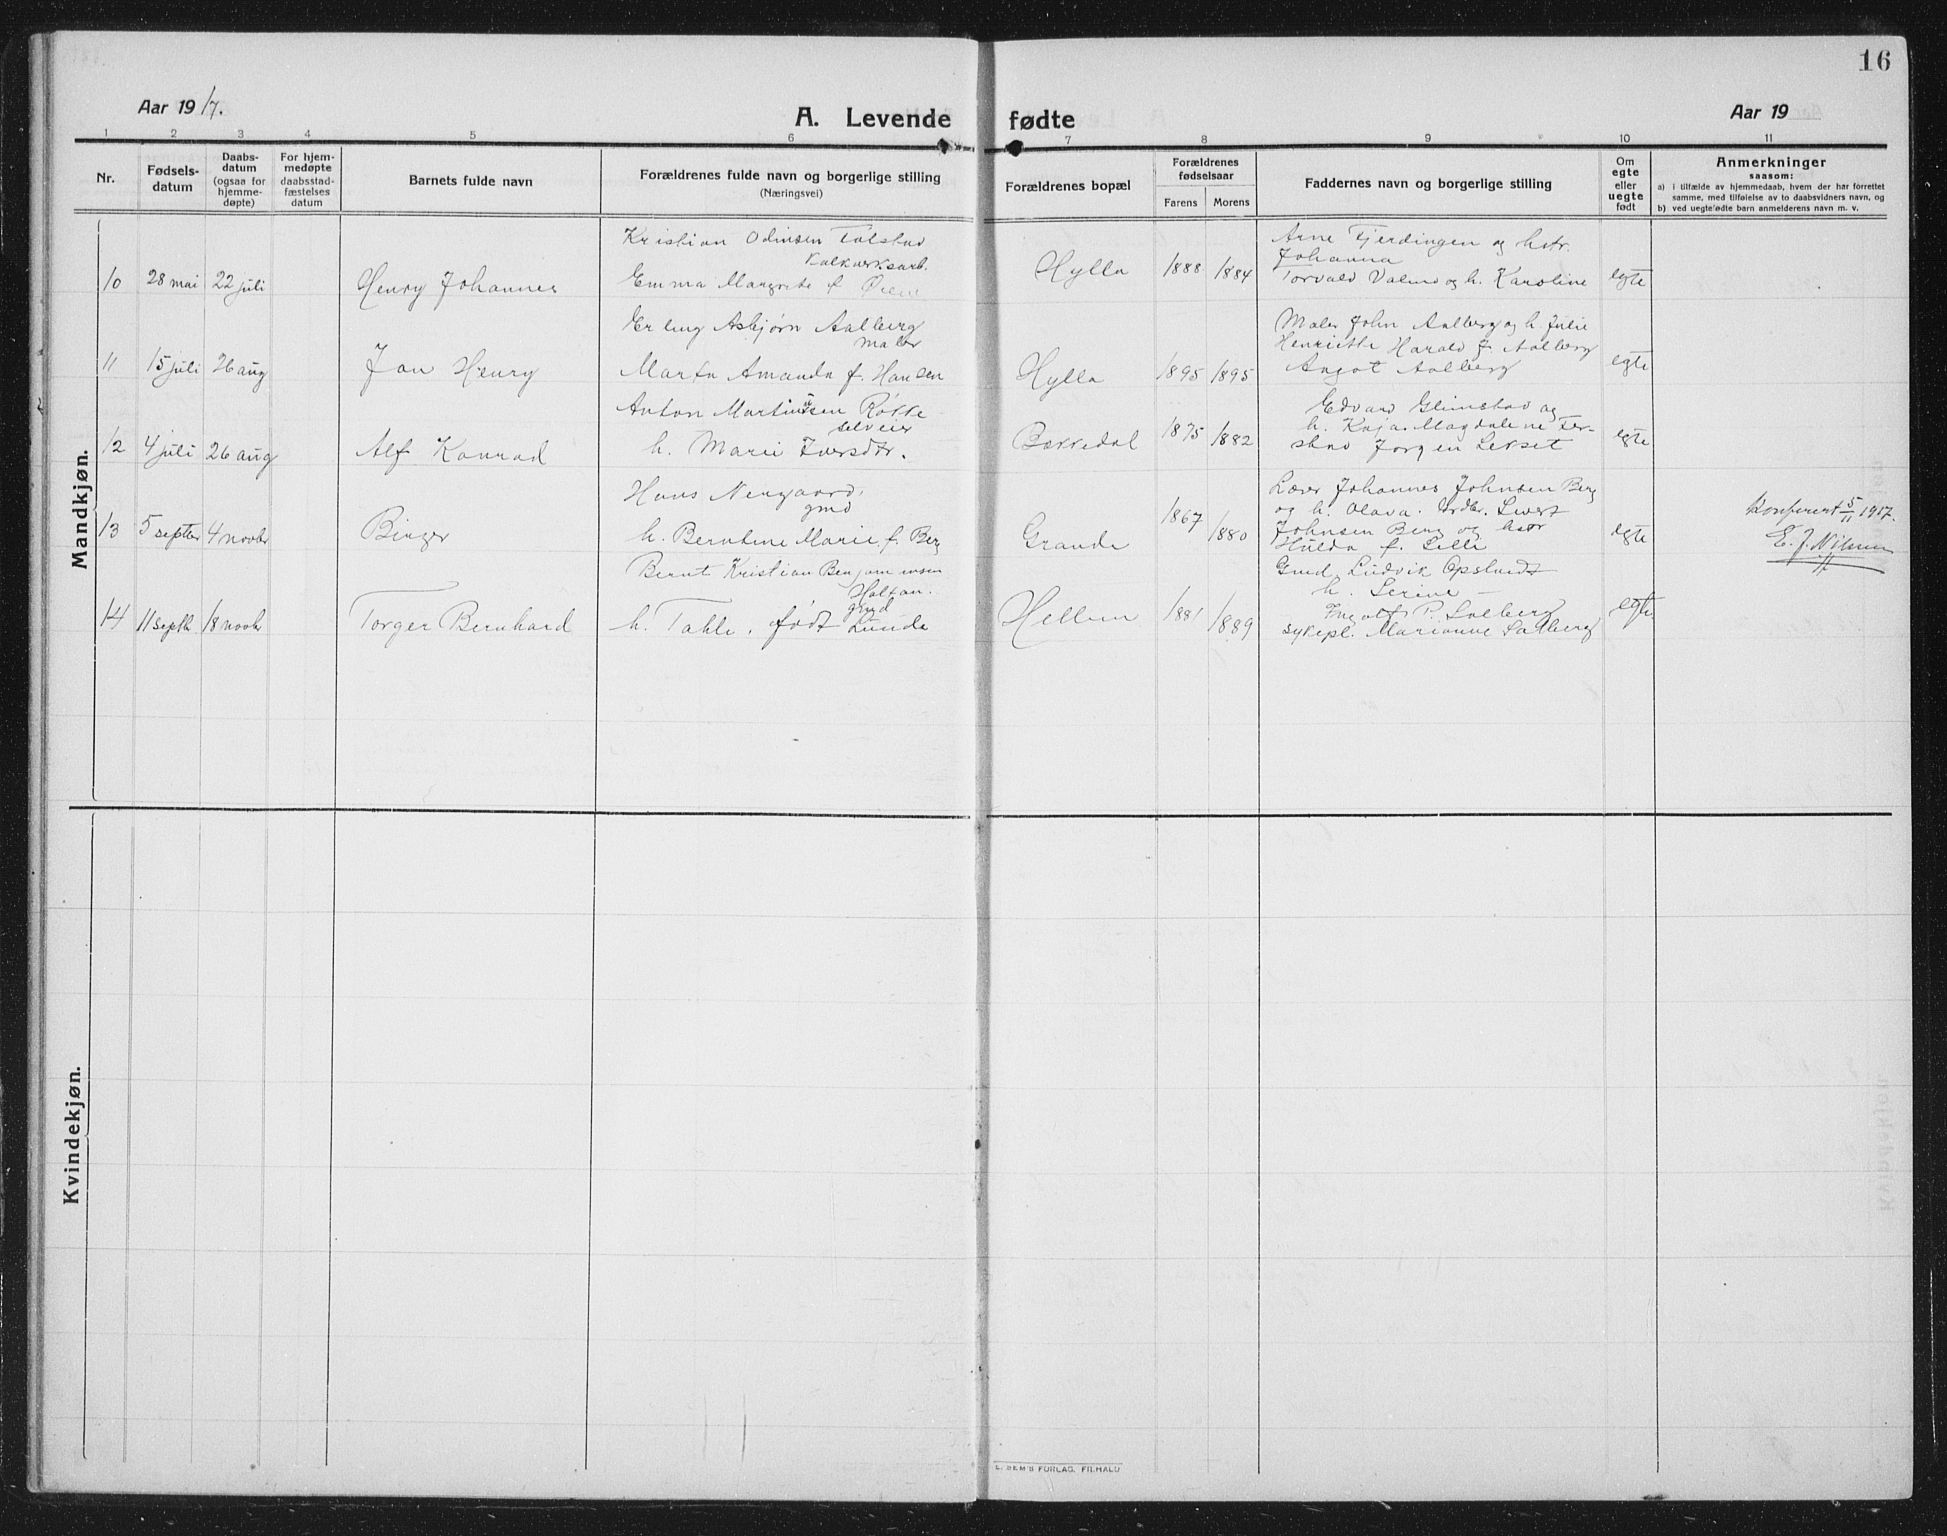 16
Aar 1917.
A. Levende fødte
Aar 19
1 2 3 4 5 6 7 8 9 10 11
Nr.
Fødsels-
datum
Daabs-
datum
(ogsaa for
hjemme-
døpte)
For hjem-
medøpte
daabsstad-
fæstelses
datum
Barnets fulde navn
Forældrenes fulde navn og borgerlige stilling
(Næringsvei)
Forældrenes bopæl
Forældrenes
fødselsaar
Farens Morens
Faddernes navn og borgerlige stilling
Om
egte
eller
uegte
født
Anmerkninger
saasom:
a) i tilfælde av hjemmedaab, hvem der har forrettet
samme, med tilføielse av to daabsvidners navn, og
b) ved uegtefødte barn anmelderens navn m. v.
Mandkjøn.
10 28 mai 22 juli Henry Johannes
Kristian Odinsen Tolstad
Kalkverksarb.
Emma Margrete f.
Hylla 1888 1884
Arne Fjerdingen og hstr.
Johanna
Torvald Valmo og h. Karoline
egte
11 15 juli 26 aug Jon Henry
Erling Asbjørn Aalberg
maler
Marta Amanda f. Hansen
Hylla 1895 1895
Maler John Aalberg og h. Julie
Henriette Harald J. Aalberg
Aagot Aalberg
egte
12 4 juli 26 aug Alf Konrad
Anton Martinusen Røkke
selveier
h. Marie Iversdtr.
Bækkedal 1875 1882
Edvard Glimstad og
h. Kaja. Magdalene
Jørgen Lekset
egte
13 5 septer 4 novbr Birger
Hans Nergaard,
gmd
h. Berntine Marie f. Berg
Grande 1867 1880
Lærer Johannes Johnsen Berg
og h. Olava. Sivert
Johnsen Berg og
Hulda f. Lilli
egte
Konferert 5/11 1917.
E. J. Nilsen
14 11 septb. 18 novbr Torger Bernhard
Bernt Kristian Benjaminsen
Holtan.
gmd
h. Tahle. født Lunde
Hellem 1881 1889
Gmd Ludvik Opsland
h. Serine –
Ingolf P. Solberg
sykepl. Marianne Solberg
egte
Kvindekjøn.
E. SEM'S FORLAG, F.H.HALD